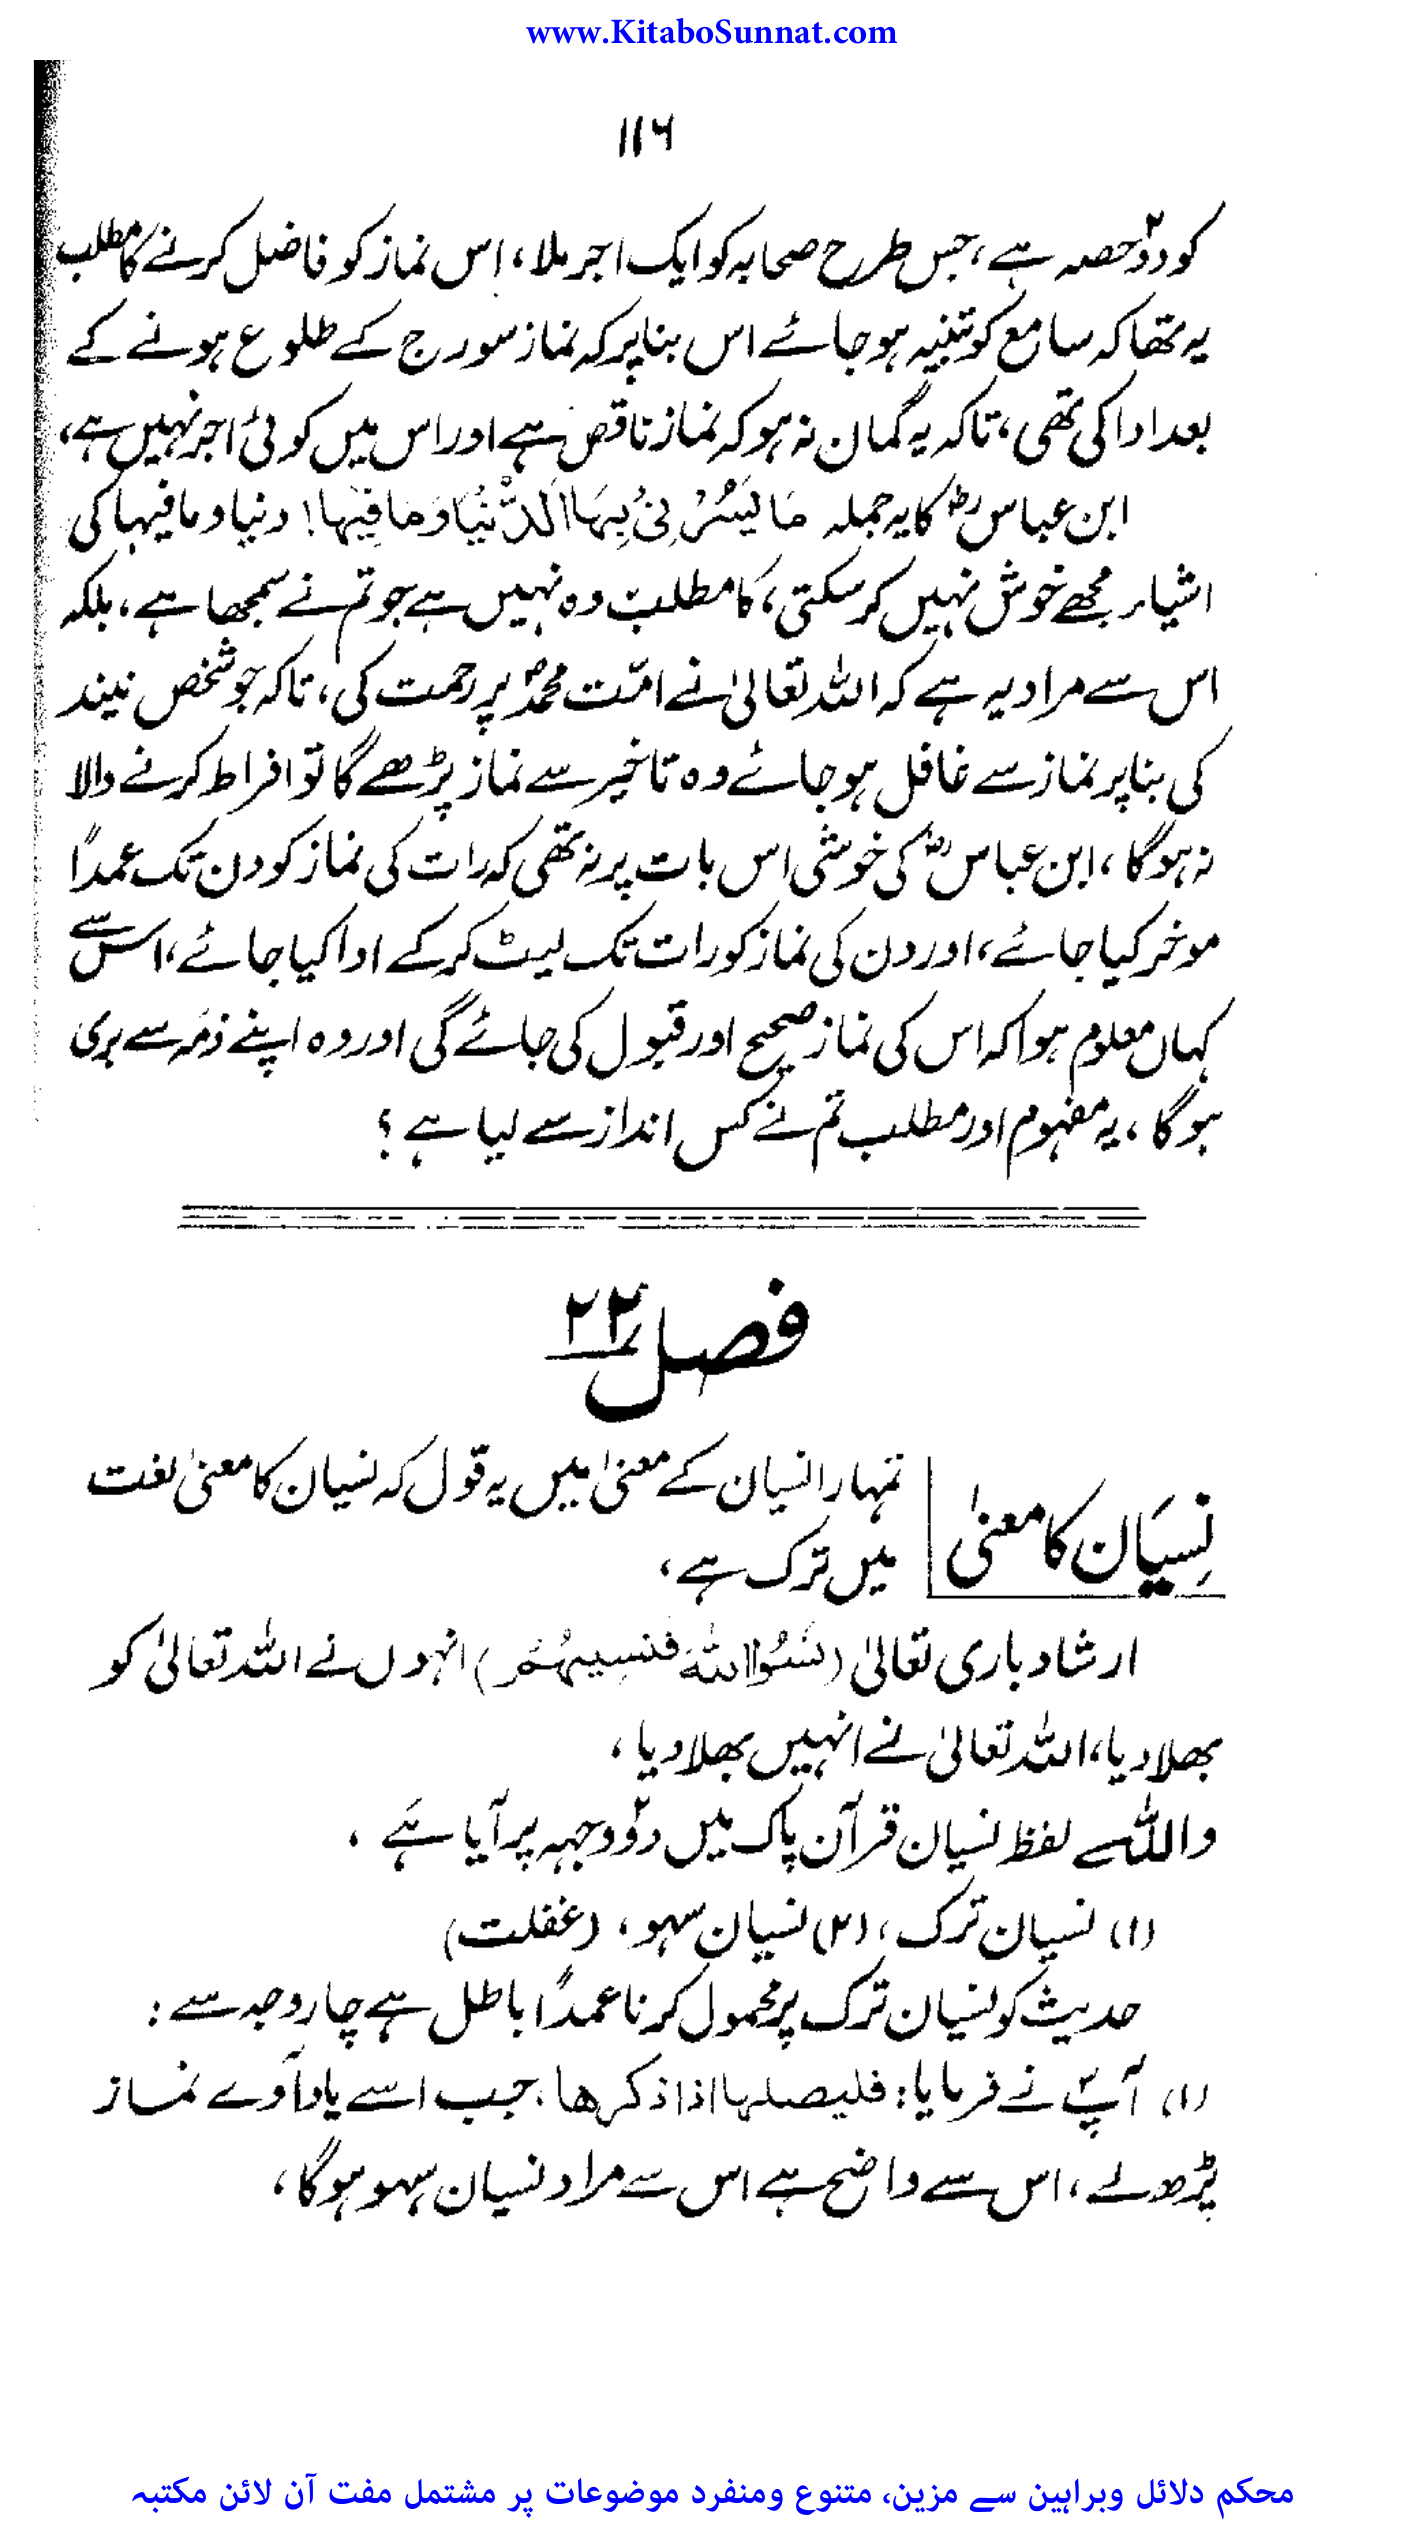 www.KitaboSunnat.com
۱۱۶
کو دو۲ حصہ ہے، جس طرح صحابہ کو ایک اجر ملا، اس نماز کو فاضل کرنے کا مطلب
یہ تھا کہ سامع کو تنبیہ ہو جائے اس بنا پر کہ نماز سورج کے طلوع ہونے کے
بعد ادا کی تھی، تاکہ یہ گمان نہ ہو کہ نماز ناقص ہے اور اس میں کوئی اجر نہیں ہے،
ابن عباسؓ کا یہ جملہ مَا یَسُرُّنِیْ بِہَا الدُّنْیَا وَمَا فِیْہَا! دنیا و ما فیہا کی
اشیاء مجھے خوش نہیں کر سکتی، کا مطلب وہ نہیں ہے جو تم نے سمجھا ہے، بلکہ
اس سے مراد یہ ہے کہ اللہ تعالیٰ نے امّت محمدؐ پر رحمت کی، تاکہ جو شخص نیند
کی بنا پر نماز سے غافل ہو جائے وہ تاخیر سے نماز پڑھے گا تو افراط کرنے والا
نہ ہوگا، ابن عباسؓ کی خوشی اس بات پر نہ تھی کہ رات کی نماز کو دن تک عمداً
موخر کیا جائے، اور دن کی نماز کو رات تک لیٹ کر کے ادا کیا جائے، اس سے
کہاں معلوم ہوا کہ اس کی نماز صحیح اور قبول کی جائے گی اور وہ اپنے ذمّہ سے بری
ہوگا، یہ مفہوم اور مطلب تم نے کس انداز سے لیا ہے ؟
فصل ۲۲
نِسیَان کا معنیٰ
تمہارا نسیان کے معنیٰ میں یہ قول کہ نسیان کا معنیٰ لغت
میں ترک ہے،
ارشاد باری تعالیٰ (نَسُوا اللّٰہَ فَنَسِیَہُمْ) انہوں نے اللہ تعالیٰ کو
بھلا دیا، اللہ تعالیٰ نے انہیں بھلا دیا،
واللہ لفظ نسیان قرآن پاک میں دو۲ وجہہ پر آیا ہے،
(۱) نسیان ترک، (۲) نسیان سہو، (غفلت)
حدیث کو نسیان ترک پر محمول کرنا عمداً باطل ہے چار وجہ سے:
(۱) آپؐ نے فرمایا: فلیصلہا اذا ذکرھا، جب اسے یاد آوے نماز
پڑھ لے، اس سے واضح ہے اس سے مراد نسیان سہو ہوگا،
محکم دلائل وبراہین سے مزین، متنوع ومنفرد موضوعات پر مشتمل مفت آن لائن مکتبہ